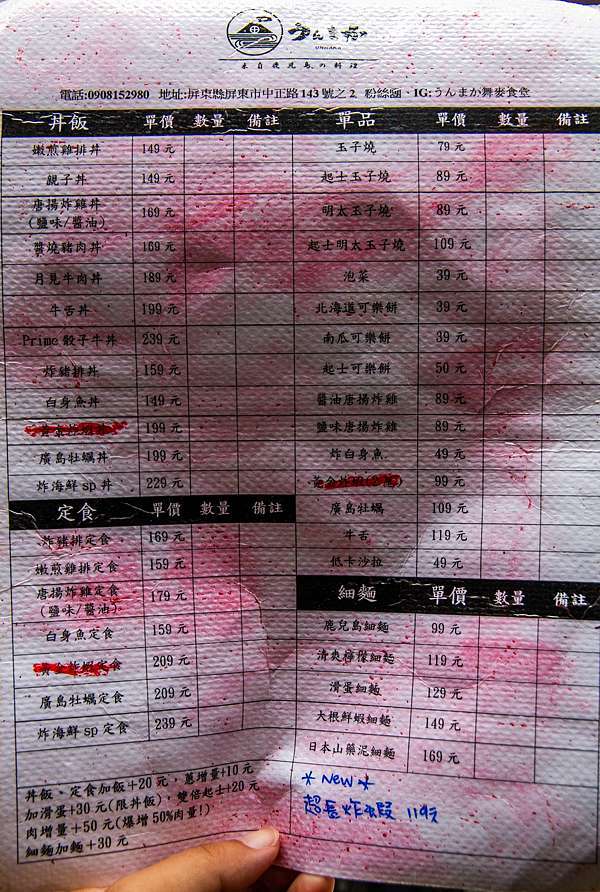 うんまか
UNMAKA
來自鹿兒島の料理
電話:0908152980 地址:屏東縣屏東市中正路143號之2 粉絲團、IG:うんまか舞麥食堂
丼飯 單價 數量 備註
嫩煎雞排丼 149元
親子丼 149元
唐揚炸雞丼
(鹽味/醬油) 169元
醬燒豬肉丼 169元
月見牛肉丼 189元
牛舌丼 199元
Prime骰子牛丼 239元
炸豬排丼 159元
白身魚丼 149元
黃金炸蝦丼 199元
廣島牡蠣丼 199元
炸海鮮sp丼 229元
定食 單價 數量 備註
炸豬排定食 169元
嫩煎雞排定食 159元
唐揚炸雞定食
(鹽味/醬油) 179元
白身魚定食 159元
黃金炸蝦定食 209元
廣島牡蠣定食 209元
炸海鮮sp定食 239元
丼飯、定食加飯+20元,蔥增量+10元
加滑蛋+30元(限丼飯),雙倍起士+20元
肉增量+50元(爆增50%肉量!)
細麵加麵+30元
單品 單價 數量 備註
玉子燒 79元
起士玉子燒 89元
明太玉子燒 89元
起士明太玉子燒 109元
泡菜 39元
北海道可樂餅 39元
南瓜可樂餅 39元
起士可樂餅 50元
醬油唐揚炸雞 89元
鹽味唐揚炸雞 89元
炸白身魚 49元
黃金炸蝦 99元
廣島牡蠣 109元
牛舌 119元
低卡沙拉 49元
細麵 單價 數量 備註
鹿兒島細麵 99元
清爽檸檬細麵 119元
滑蛋細麵 129元
大根鮮蝦細麵 149元
日本山藥泥細麵 169元
*New*
超長炸蝦 119元